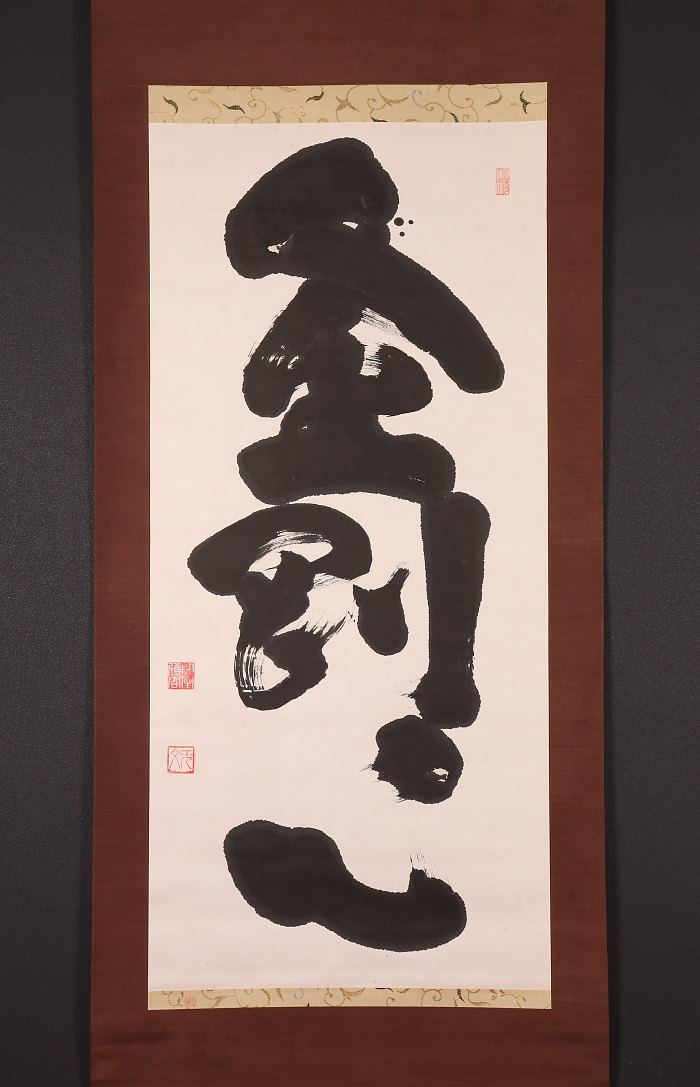 金剛心